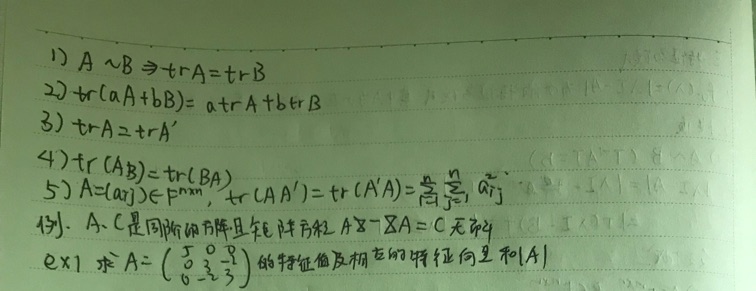 1) A ~B ⇒ trA = trB
2) tr(aA+bB) = atrA+btrB
3) trA = trA'
4) tr(AB) = tr(BA)
5) A=(aij)∈F^{n×n}, tr(AA') = tr(A'A) = \sum_{i=1}^{n} \sum_{j=1}^{n} a_{ij}^2
例. A、C是同阶的方阵且矩阵方程 AX-XA=C 无解
ex1 求 A= 的特征值及相应的特征向量和|A|